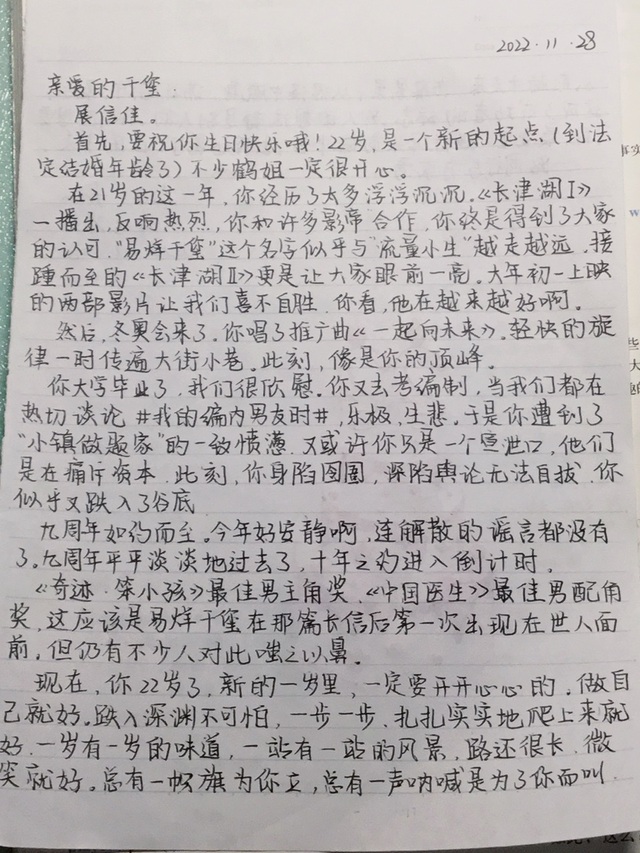 2022.11.28
亲爱的千玺:
展信佳。
首先,要祝你生日快乐哦!22岁,是一个新的起点(到法
定结婚年龄了)不少鹤姐一定很开心。
在21岁的这一年,你经历了太多浮浮沉沉。《长津湖Ⅰ》
一播出,反响热烈,你和许多影帝合作,你终是得到了大家
的认可,"易烊千玺"这个名字似乎与"流量小生"越走越远,接
踵而至的《长津湖Ⅱ》更是让大家眼前一亮。大年初一上映
的两部影片让我们喜不自胜,你看,他在越来越好啊。
然后,冬奥会来了。你唱了推广曲《一起向未来》。轻快的旋
律一时传遍大街小巷。此刻,像是你的顶峰。
你大学毕业了,我们很欣慰。你又去考编制,当我们都在
热切谈论#我的编内男友时#,乐极,生悲。于是你遭到了
"小镇做题家"的一致愤懑,又或许你只是一个宣泄口,他们
是在痛斥资本,此刻,你身陷囹圄,深陷舆论无法自拔,你
似乎又跌入了谷底
九周年如约而至。今年好安静啊,连解散的谣言都没有
了。九周年平平淡淡地过去了,十年之约进入倒计时。
《奇迹·笨小孩》最佳男主角奖、《中国医生》最佳男配角
奖,这应该是易烊千玺在那篇长信后第一次出现在世人面
前,但仍有不少人对此嗤之以鼻。
现在,你22岁了,新的一岁里,一定要开开心心的。做自
己就好。跌入深渊不可怕,一步一步,扎扎实实地爬上来就
好,一岁有一岁的味道,一站有一站的风景,路还很长,微
笑就好。总有一帜旗为你立,总有一声呐喊是为了你而叫